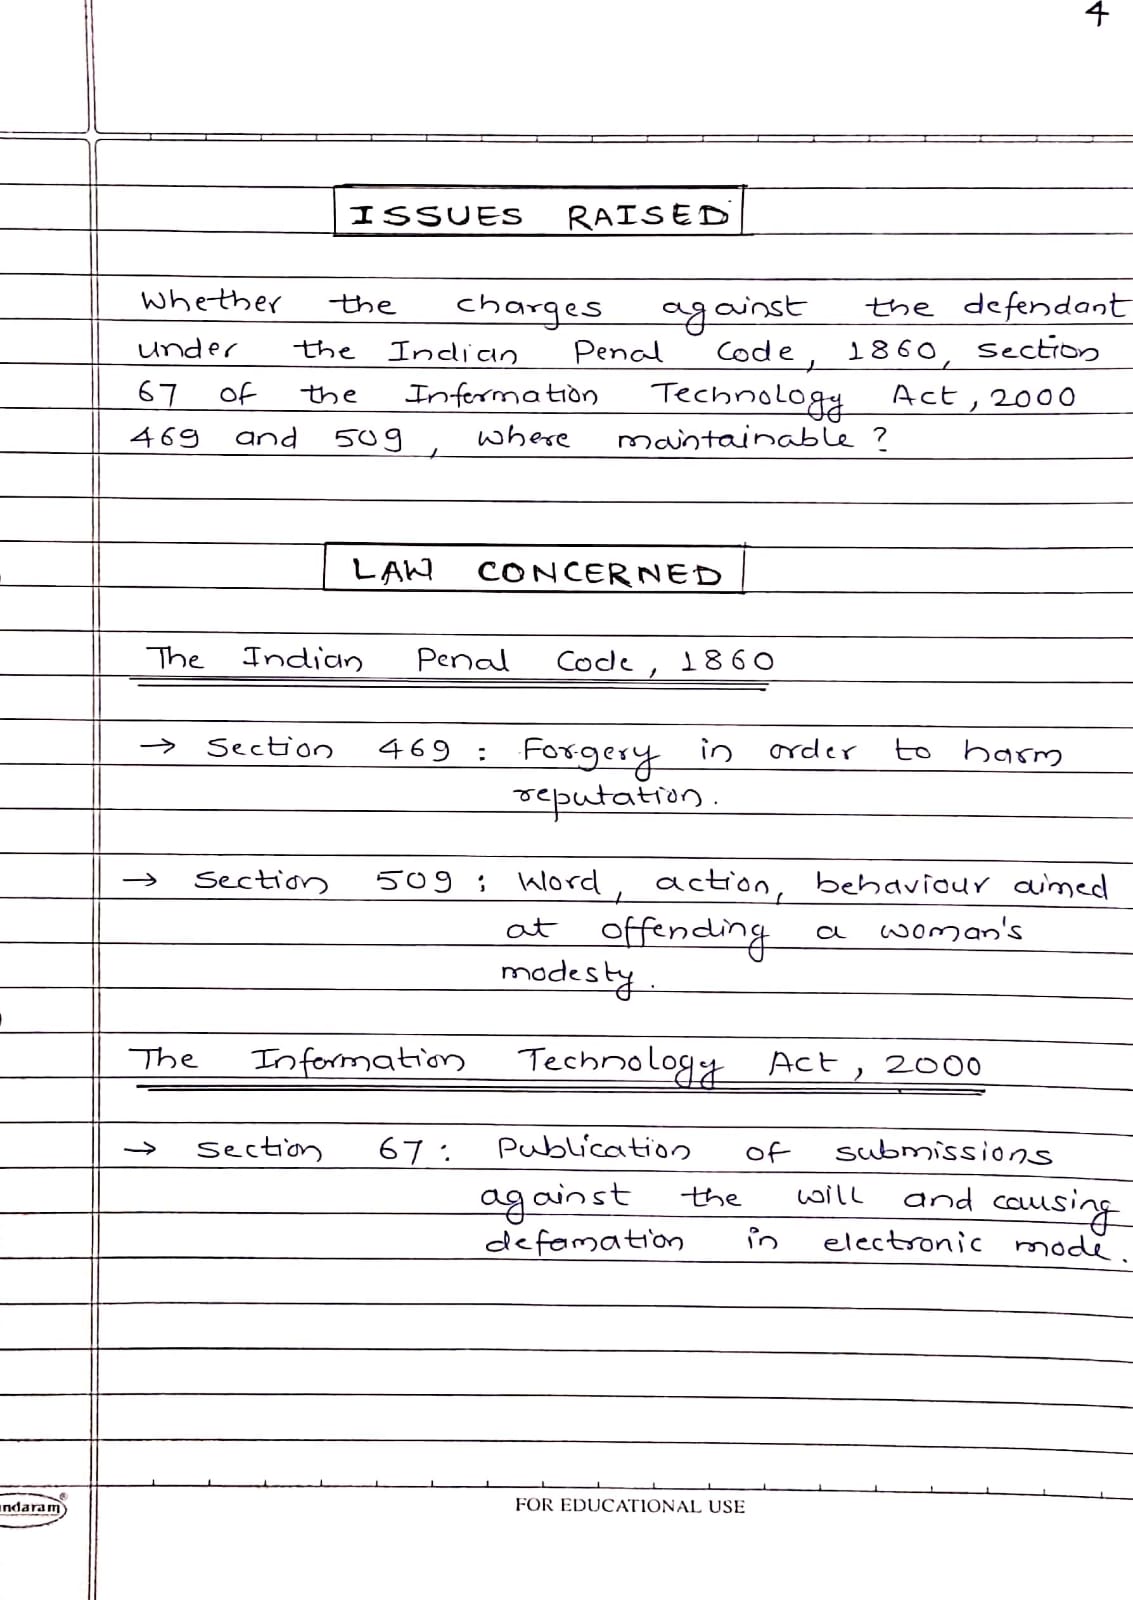 4
ISSUES RAISED
Whether the charges against the defendant
under the Indian Penal Code, 1860, section
67 of the Information Technology Act, 2000
469 and 509, where maintainable?
LAW CONCERNED
The Indian Penal Code, 1860
→ Section 469 : Forgery in order to harm
reputation.
→ Section 509 : Word, action, behaviour aimed
at offending a woman's
modesty.
The Information Technology Act, 2000
→ Section 67 : Publication of submissions
against the will and causing
defamation in electronic mode.
ndaram®
FOR EDUCATIONAL USE